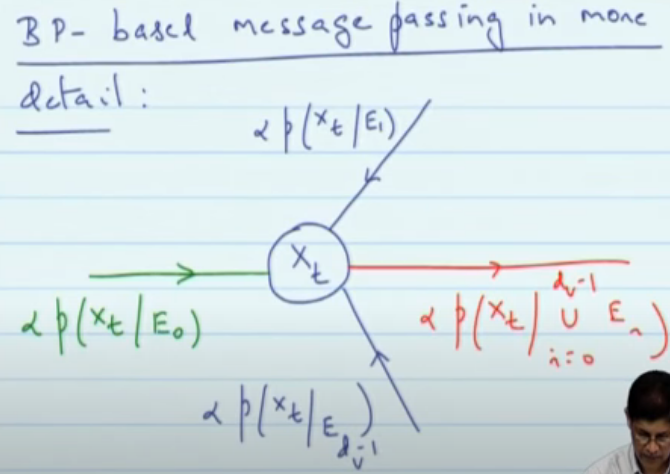 BP- based message passing in more
detail:
α p(x_t | E_1)
x_t
α p(x_t | E_0)
α p(x_t | ∪_{i=0}^{d_v-1} E_i)
α p(x_t | E_{d_v-1})